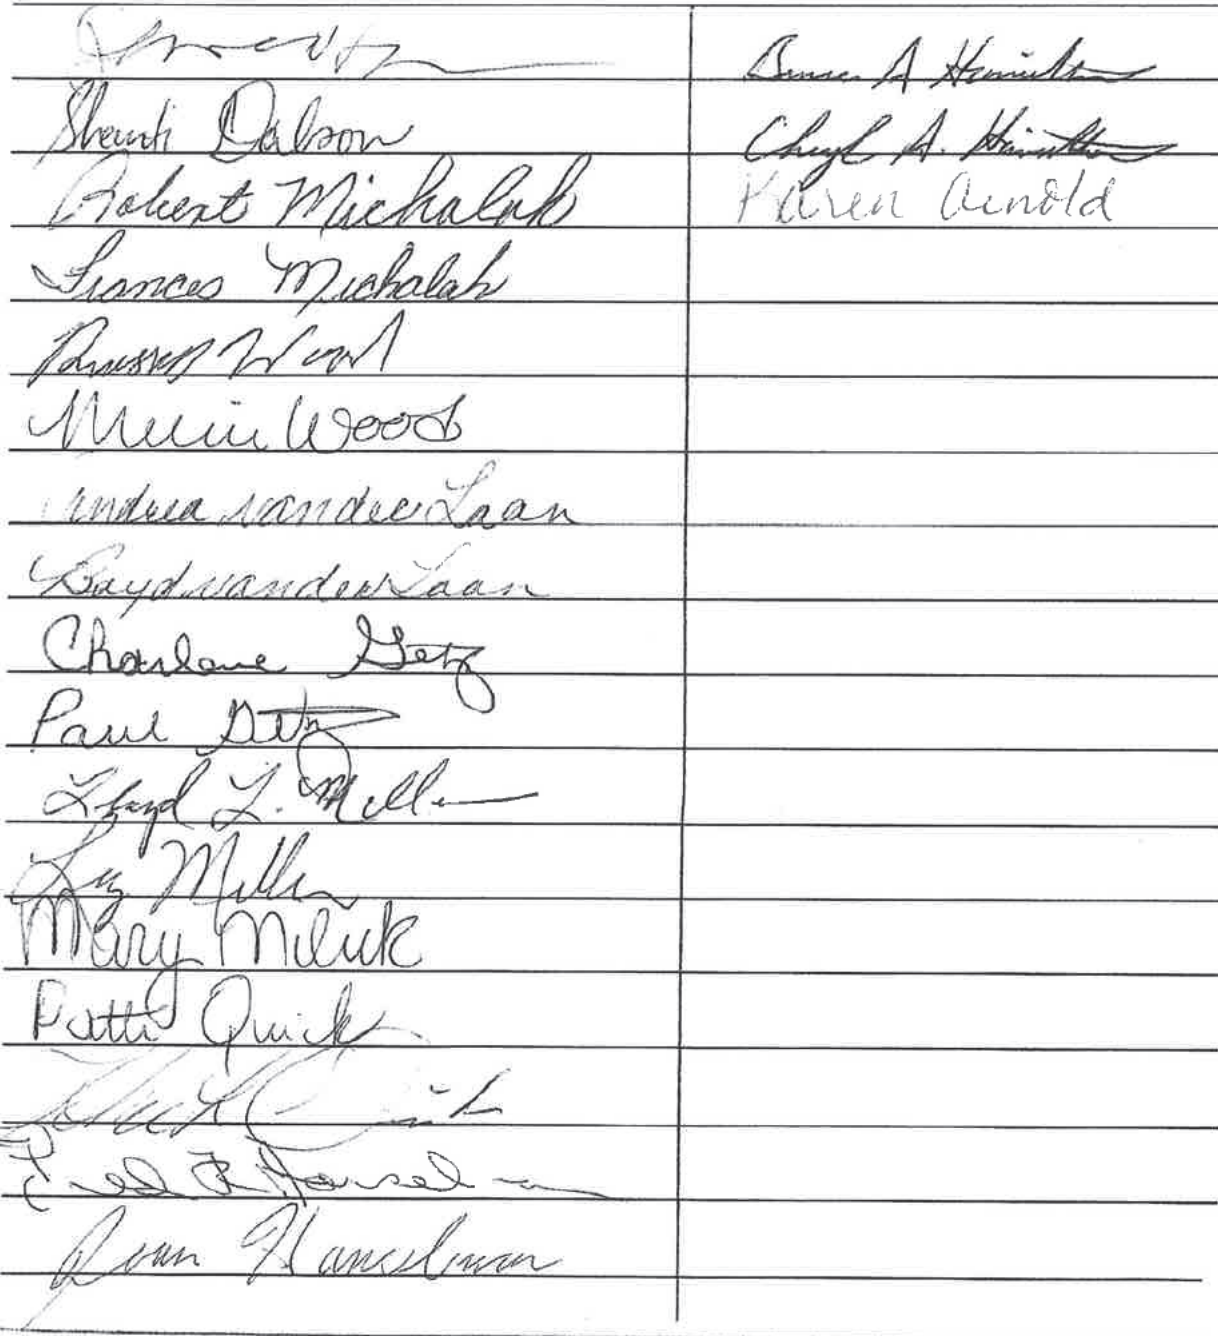 Dalson
Robert Michalak
Frances Michalak
Wood
Wood
Andrea vander Laan
Boyd vander Laan
Charlene Getz
Paul Getz
Lloyd L. Miller
Liz Miller
Mary Miluk
Patti Quick
Fred Hanselman
Joan Hanselman
A Hamilton
Cheryl A. Hamilton
Karen Arnold